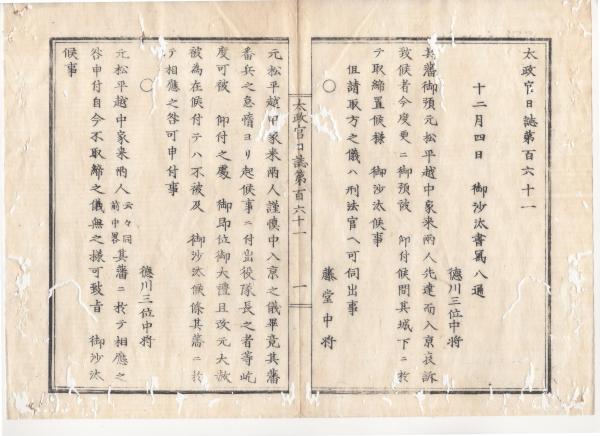 太政官日誌第百六十一
十二月四日 御沙汰書寫八通
徳川三位中将
其藩御預元松平越中家来兩人先達而入京哀訴
致候者今度更ニ御預被 仰付候間其城下ニ於
テ取締置候様 御沙汰候事
但請取方之儀ハ刑法官ヘ可伺出事
○ 藤堂中将
太政官日誌第百六十一 一
元松平越中家来兩人謹慎中入京之儀畢竟其藩
番兵之怠惰ヨリ起候事ニ付出役隊長之者等屹
度可被 仰付之處 御即位御大禮且改元大赦
被為在候付テハ不被及 御沙汰候條其藩ニ於
テ相應之咎可申付事
○ 徳川三位中将
元松平越中家来兩人云々同前中畧其藩ニ於テ相應之
咎申付自今不取締之儀無之様可致旨 御沙汰
候事